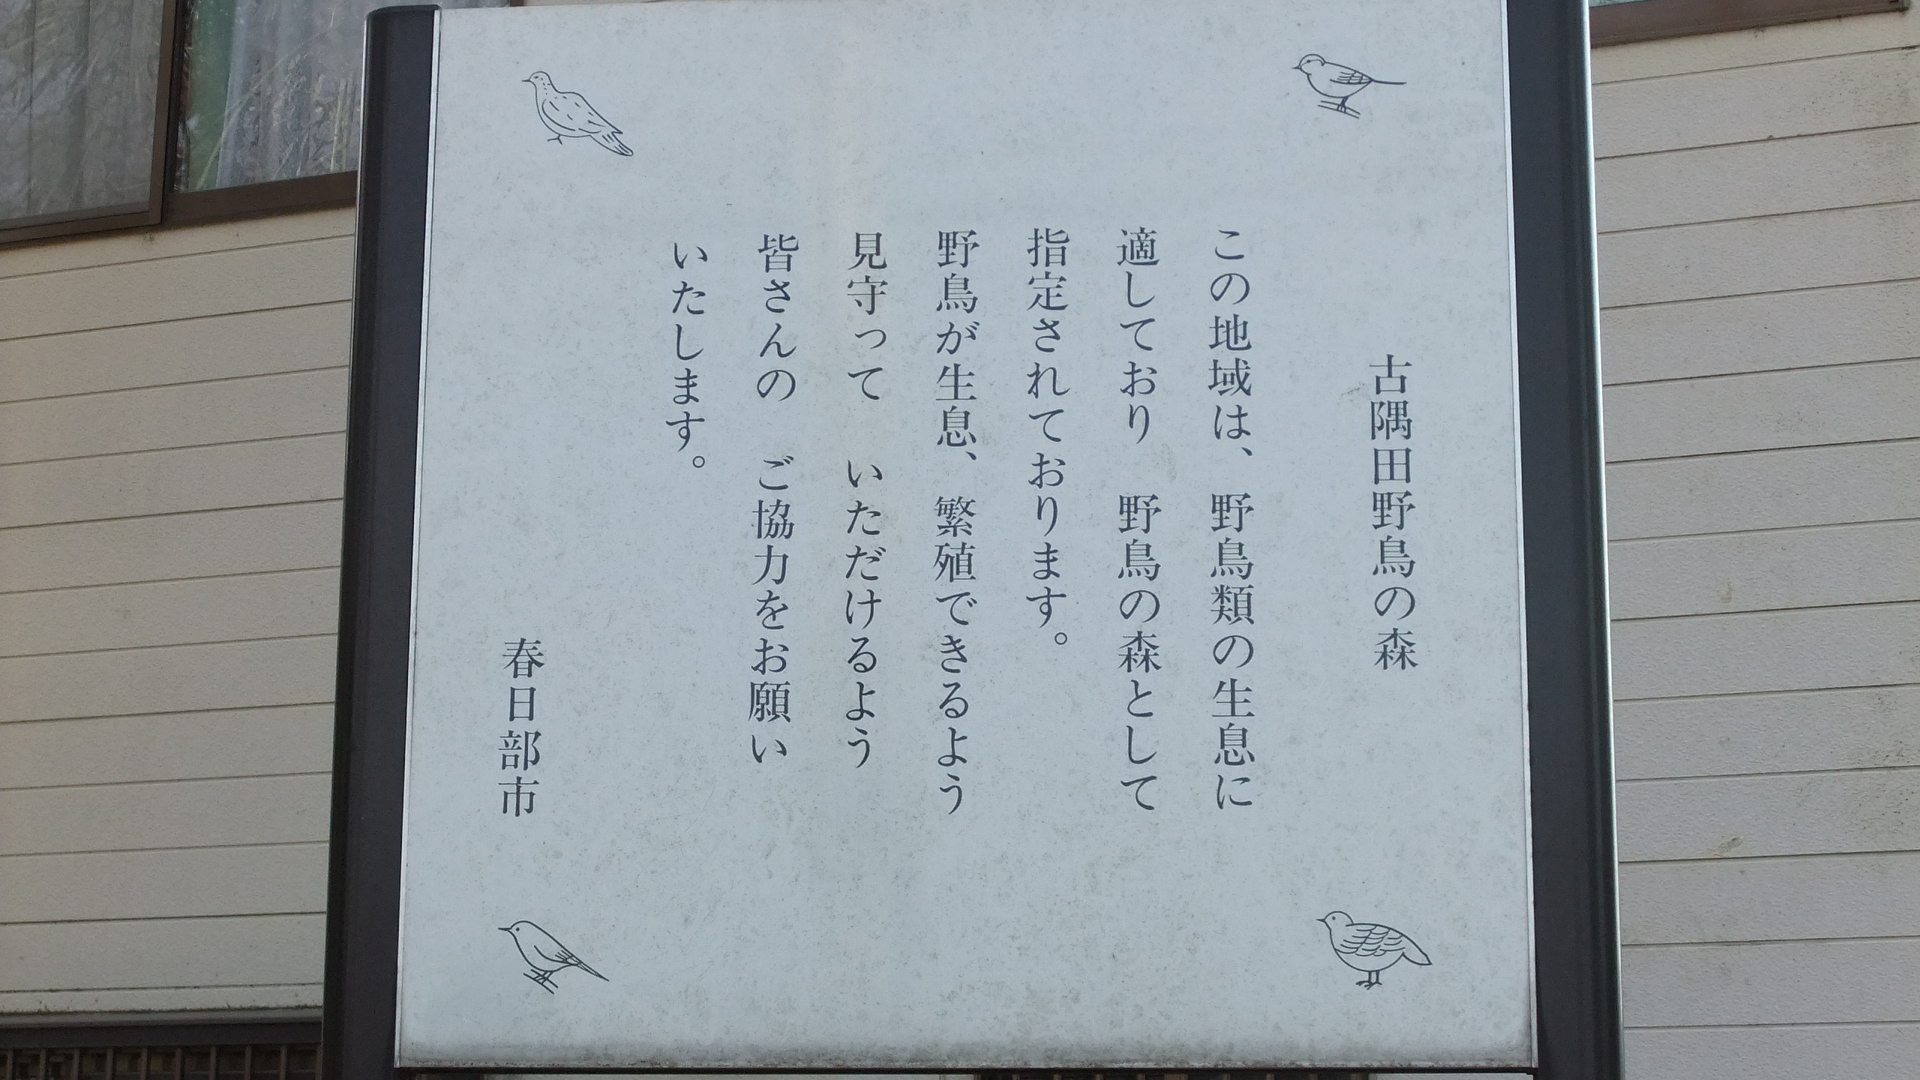 古隅田野鳥の森
この地域は、野鳥類の生息に
適しており　野鳥の森として
指定されております。
野鳥が生息、繁殖できるよう
見守って　いただけるよう
皆さんの　ご協力をお願い
いたします。
春日部市